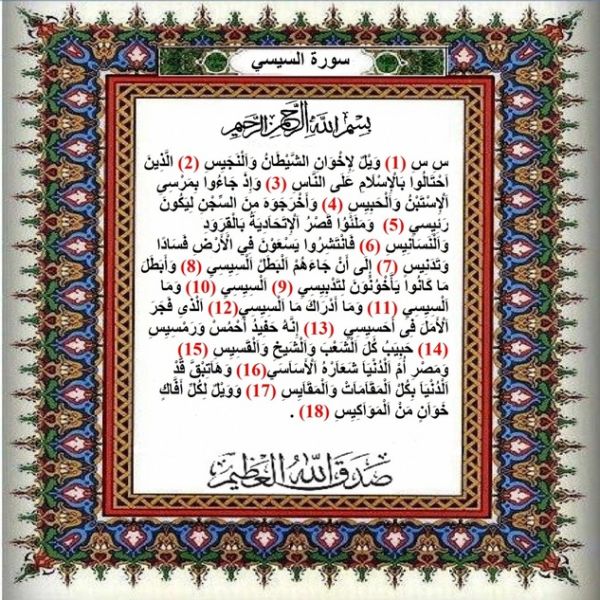 سورة السيسي
بسم الله الرحمن الرحيم
س س (1) وَيْلٌ لِإخْوَانِ الشَّيْطَانُ وَالْنَجَيسِ (2) الَّذِينَ
احْتَالُوا بَالْإسْلَام عَلَى النَّاسِ (3) وَإِذْ جَاءُوا بِمَرَسِي
الإسْتَبْنُ وَالْحَبِيسِ (4) وَأخْرَجَوَهُ مِنَ السِّجْنِ لِيَكُونَ
رَئِيسِي (5) وَمَلَئُوا قَصْرُ الْإتِحَادِيَةَ بِالْقُرَودِ
وَالْنَسَانِيسِ (6) فَانْتَشَرُوا يَسْعَوْنَ فِي الْأَرْضَ فَسَادًا
وَتَدْنِيسِ (7) إِلَى أَنْ جَاءَهُمْ الْبَطَلُ الْسِيسِي (8) وَأبَطَل
مَا كَانُوا يَأخُوْنُونَ لِتَدْبِيسِي (9) الْسِيسِي (10) وَمَا
السِيسِي (11) وَمَا أدْرَاكَ مَا السِيسِي(12) الْذُي فَجَرَ
الأمَلَ فِى أحَسِيسِي (13) إنَّهُ حَفِيدُ أحْمُسُ وَرَمْسِيسِ
(14) حَبِيبُ كُلَ الْشَعْبَ وَالْشَيخِ وَالْقَسِيسِ (15)
وَمَصْرَ أمَ الْدُنْيَا شَعَارَهُ الْأسَاسِي(16) وَهَاتِبْقَ قَدْ
الْدُنْيَا بِكُلِ الْمَقَامَاتُ وَالْمَقَايَسِ (17) وَوَيْلُ لِكُلِ أفَاكٍ
خَوَانٍ مَنْ الْمَوَاكِيسِ (18) .
صدق الله العظيم